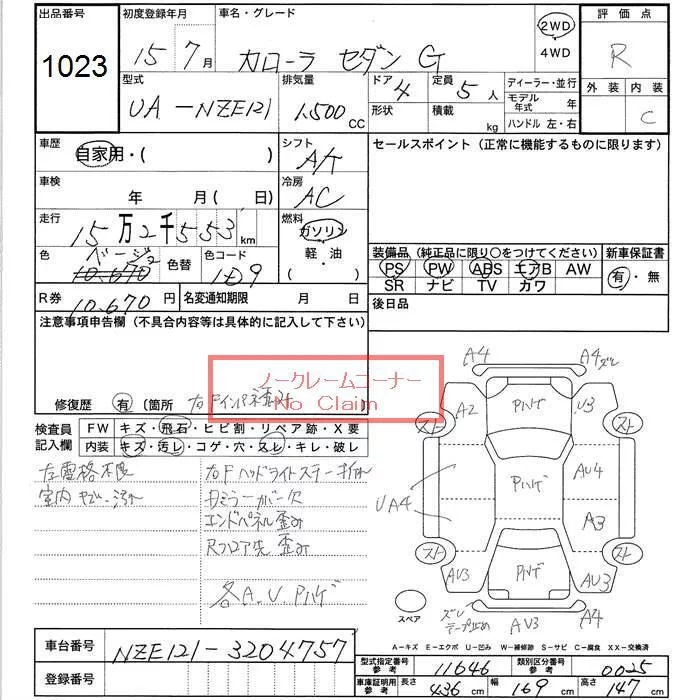 出品番号 初度登録年月 車名・グレード 評価点
1023
15 7月 カローラ セダン G 2WD R
4WD
型式 排気量 ドア 4 定員 5人 ディーラー・並行 外装 内装
UA-NZE121 1,500 CC 形状 積載 kg モデル年式 年 C
ハンドル 左・右
車歴 自家用・( ) シフト A/T セールスポイント(正常に機能するものに限ります)
車検 年 月( 日) 冷房 AC
走行 15万2千553km 燃料 ガソリン
軽・油
( )
色 ベージュ 色替 色コード 1D9
10,670
装備品(純正品に限り○をつけてください) 新車保証書
PS PW ABS エアB AW 有・無
SR ナビ TV カワ
R券 10,670円 名変通知期限 月 日 後日品
注意事項申告欄(不具合内容等は具体的に記入して下さい)
ノークレームコーナー
No Claim
修復歴 有 〔箇所 右Fインパネ歪み
検査員 FW キズ・飛石・ヒビ割・リペア跡・X要
記入欄 内装 キズ・汚レ・コゲ・穴・スレ・キレ・破レ
右Fヘッドライトステー
室内キズ・汚れ ミラーカバー欠
エンドパネル歪み
Rフロア先 歪み
各A.U.Pハゲ
A4 A4ズレ
A2 Pハゲ U3
スト スト
UA4 Pハゲ AU4
A3
スト スト
AU3 Pハゲ AU3
スペア ズレ テープ止め AU3 A4
A-キズ E-エクボ U-凹み W-補修跡 S-サビ C-腐食 XX-交換済
車台番号 NZE121-3204757
型式指定番号 参考 11646 類別区分番号 参考 0025
登録番号 車庫証明用 参考 長さ 436cm 幅 169cm 高さ 147cm